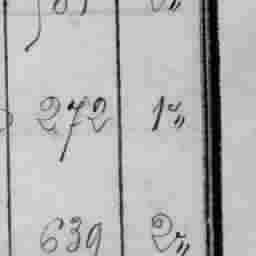 272 1 "„
639 2 "„